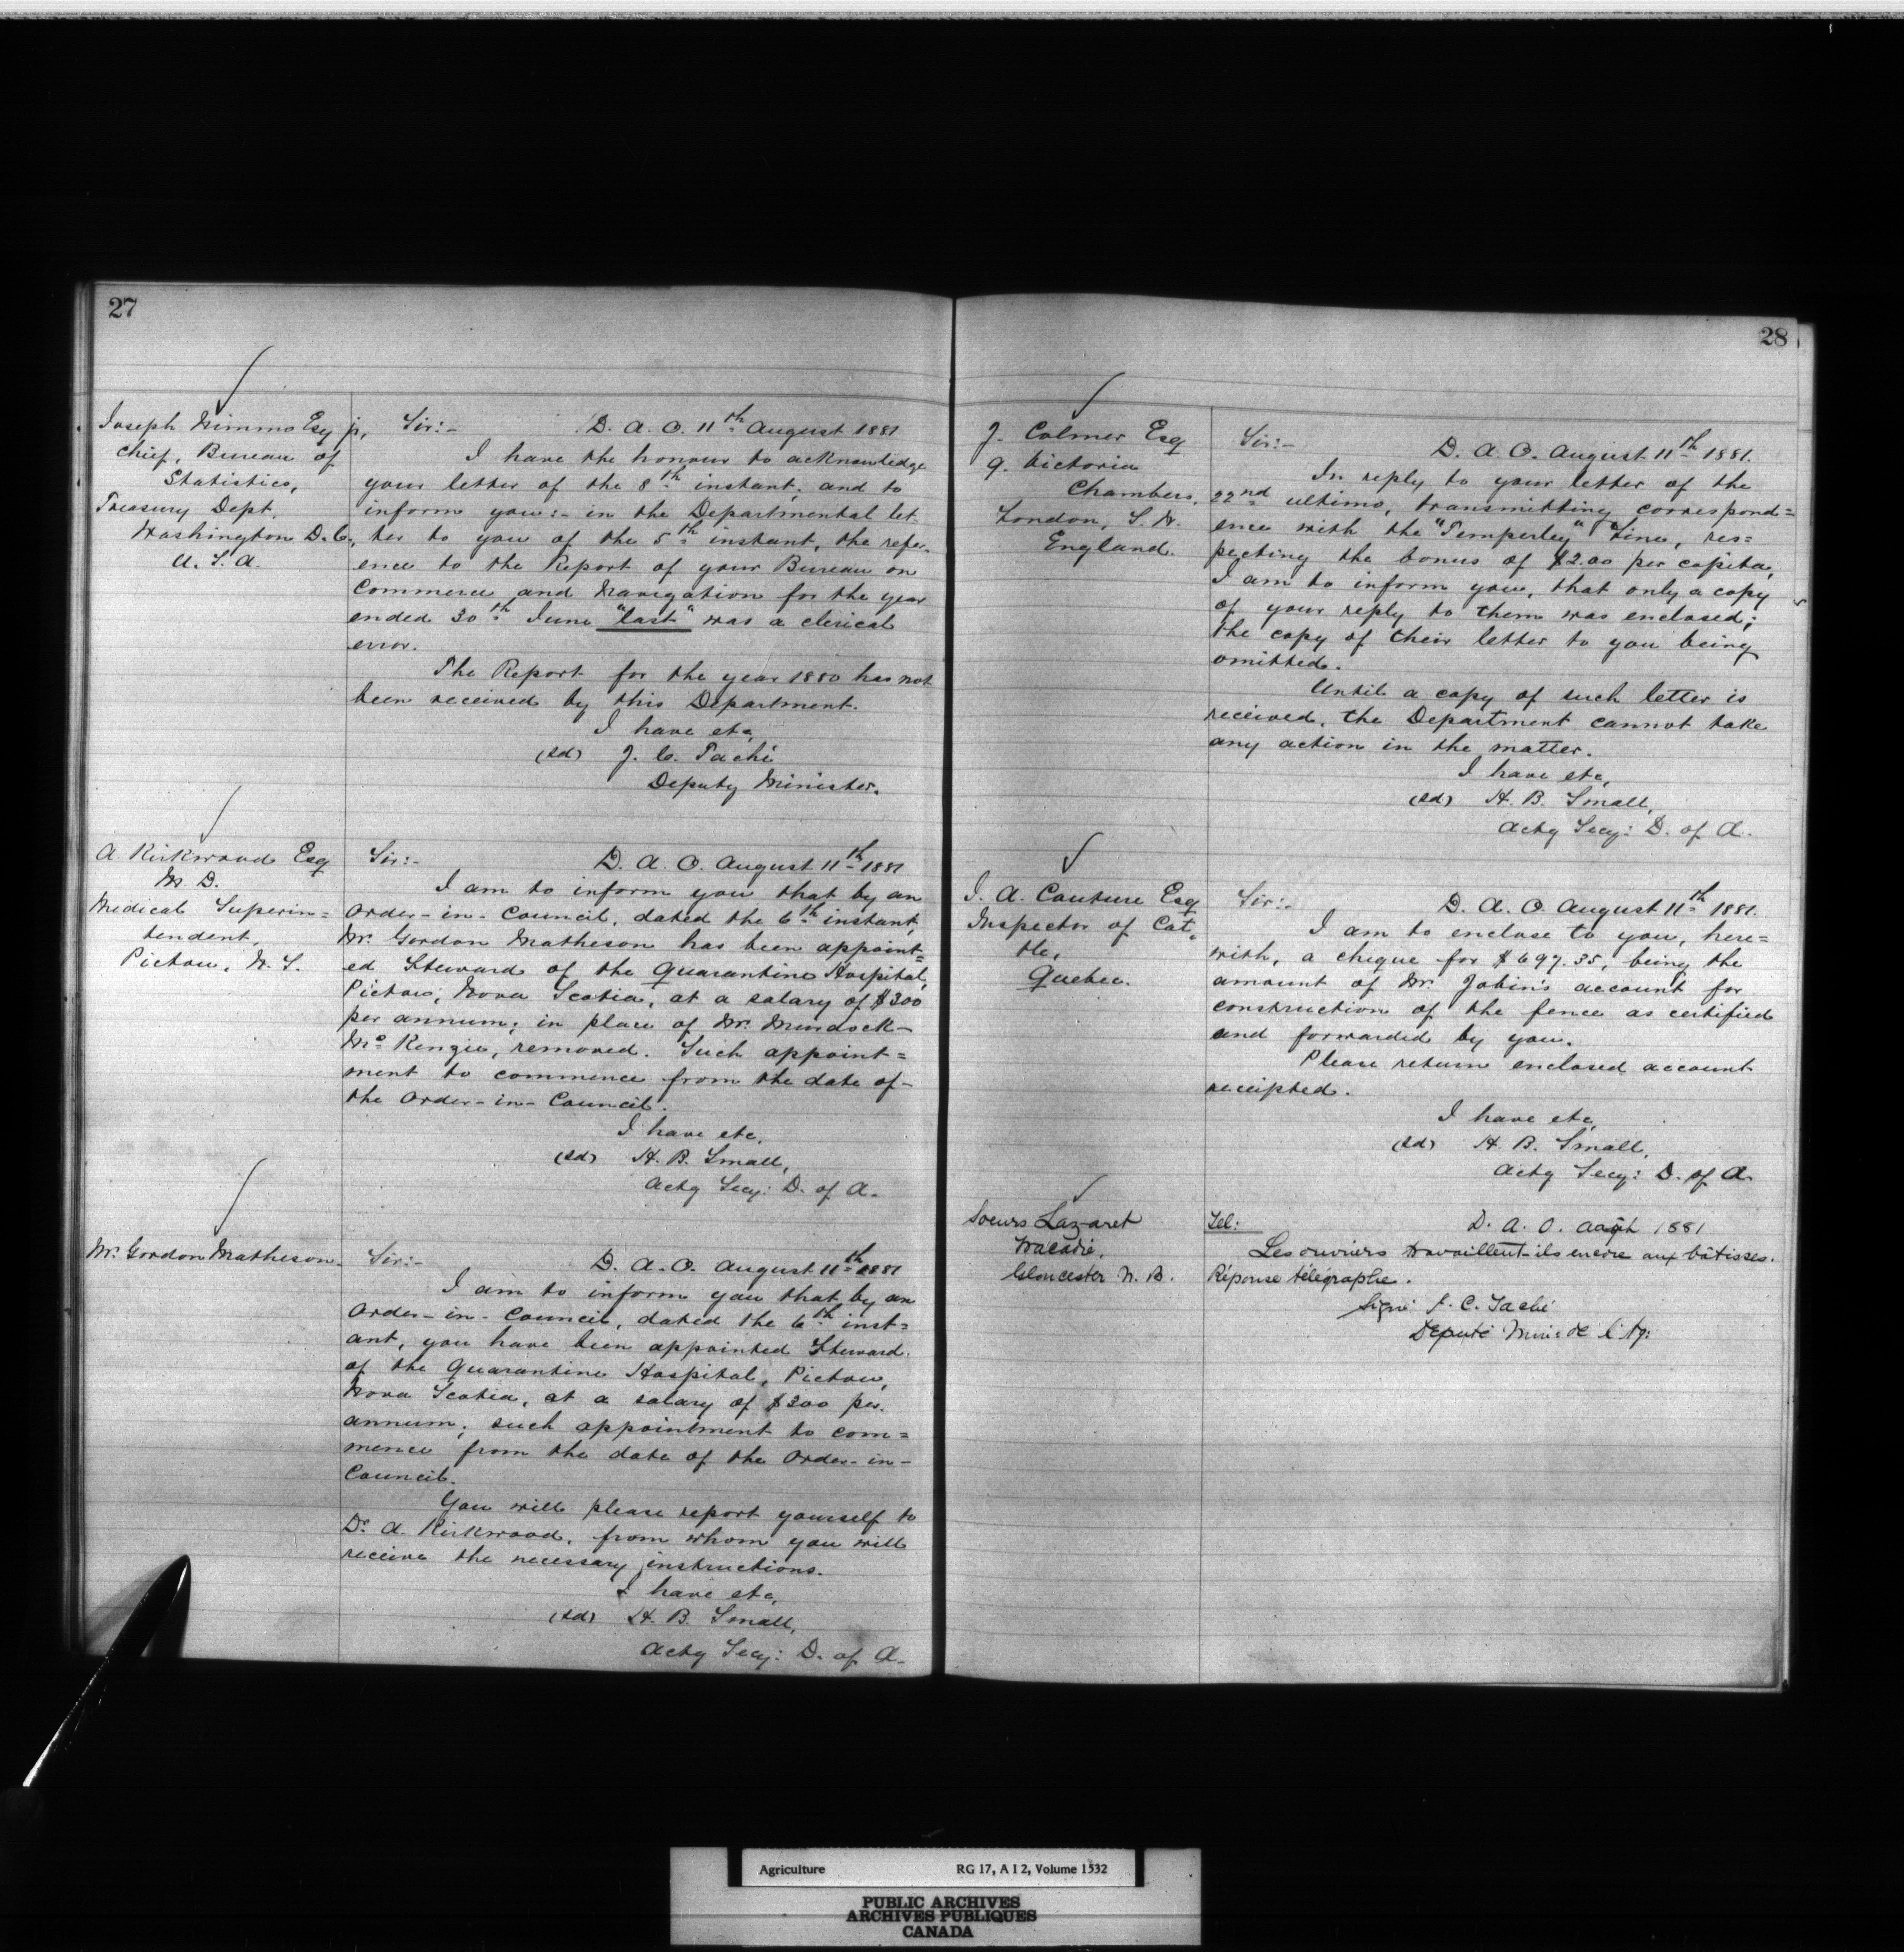 27
Joseph Nimmo Esq jr,
Chief, Bureau of
Statistics,
Treasury Dept.
Washington D.C.,
U. S. A.
Sir:- D. A. O. 11th August 1881
I have the honour to acknowledge
your letter of the 8th instant; and to
inform you:- in the Departmental let-
ter to you of the 5th instant, the refer-
ence to the Report of your Bureau on
Commerce and Navigation for the year
ended 30th June "last" was a clerical
error.
The Report for the year 1880 has not
been received by this Department.
I have etc,
(sd) J. C. Taché
Deputy Minister.
A. Kirkwood Esq
M. D.
Medical Superin=
tendent,
Pictou, N. S.
Sir:- D. A. O. August 11th 1881
I am to inform you that by an
Order-in-Council, dated the 6th instant,
Mr. Gordon Matheson has been appoint=
ed Steward of the Quarantine Hospital,
Pictou, Nova Scotia, at a salary of $300
per annum; in place of Mr. Murdock-
McKenzie, removed. Such appoint=
ment to commence from the date of-
the Order-in-Council.
I have etc,
(sd) H. B. Small,
Actg Secy: D. of A.
Mr. Gordon Matheson.
Sir:- D. A. O. August 11th 1881
I am to inform you that by an
Order-in-Council, dated the 6th inst=
ant, you have been appointed Steward
of the Quarantine Hospital, Pictou,
Nova Scotia, at a salary of $300 per
annum; such appointment to com=
mence from the date of the Order-in-
Council.
You will please report yourself to
Dr. A. Kirkwood, from whom you will
receive the necessary instructions.
I have etc,
(sd) H. B. Small,
Actg Secy: D. of A.
28
J. Colmer Esq
9. Victoria
Chambers,
London, S. W.
England.
Sir:- D. A. O. August 11th 1881.
In reply to your letter of the
22nd ultimo, transmitting correspond=
ence with the "Temperley" Line, res=
pecting the bonus of $2.00 per capita,
I am to inform you, that only a copy
of your reply to them was enclosed;
the copy of their letter to you being
omitted.
Until a copy of such letter is
received, the Department cannot take
any action in the matter.
I have etc,
(sd) H. B. Small,
Actg Secy: D. of A.
J. A. Couture Esq
Inspector of Cat-
tle,
Quebec.
Sir:- D. A. O. August 11th 1881.
I am to enclose to you, here=
with, a cheque for $697.35, being the
amount of Mr. Jobin's account for
construction of the fence as certified
and forwarded by you.
Please return enclosed account
receipted.
I have etc,
(sd) H. B. Small,
Actg Secy: D. of A.
Soeurs Lazaret
Tracadie,
Gloucester N. B.
Tel: D. A. O. 1881
Les ouvriers travaillent-ils encore aux bâtisses.
Réponse télégraphe.
Signé J. C. Taché
Député Min: de l'Ag:
Agriculture RG 17, A I 2, Volume 1532
PUBLIC ARCHIVES
ARCHIVES PUBLIQUES
CANADA